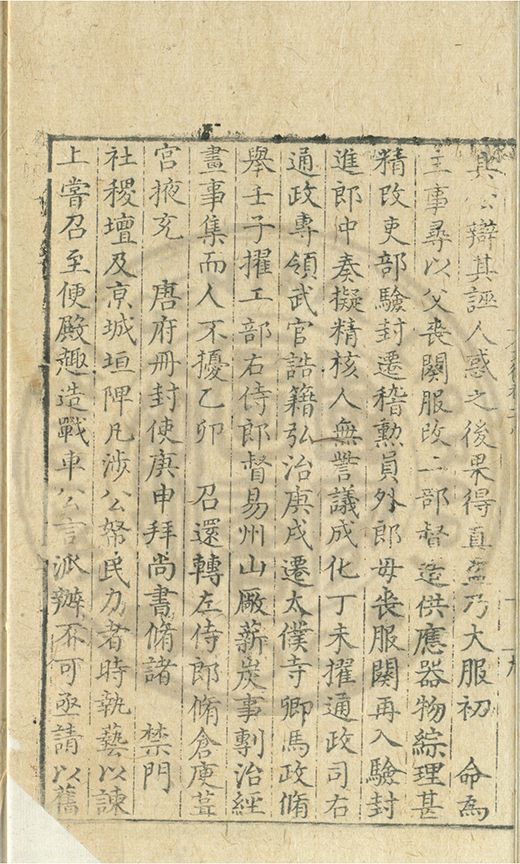 具公辯其誣人惑之後果得真盜乃大服初　命為
主事尋以父喪闋服改工部督造供應器物綜理甚
精改吏部驗封遷稽勲員外郎毋喪服闋再入驗封
進郎中奏擬精核人無訾議成化丁未擢通政司右
通政專領武官誥籍弘治庚戌遷太僕寺卿馬政脩
舉壬子擢工部右侍郎督易州山廠薪炭事剸治經
畫事集而人不擾乙卯　召還轉左侍郎脩倉庾葺
宮掖充　唐府冊封使庚申拜尚書脩諸　禁門
社稷壇及京城垣陴凡涉公帑民力者時執藝以諫
上嘗召至便殿趣造戰車公言派辦不可亟請以舊